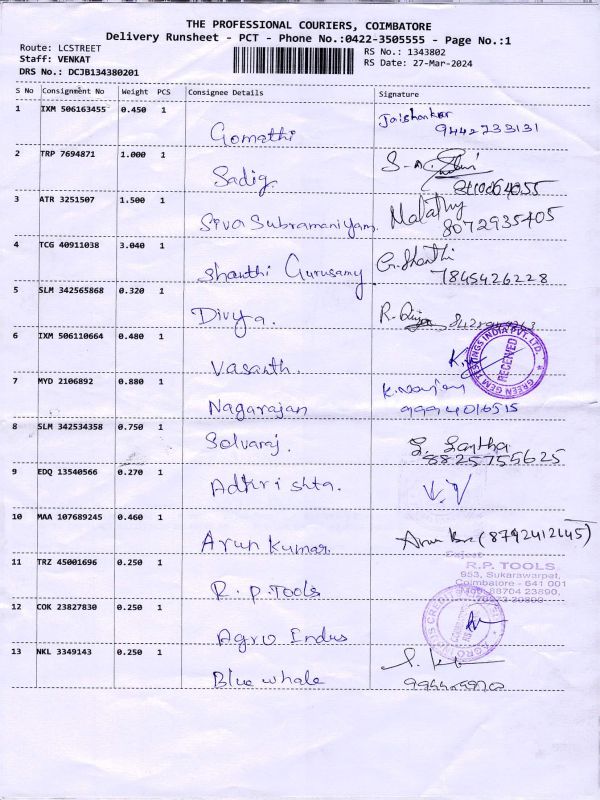 THE PROFESSIONAL COURIERS, COIMBATORE
Delivery Runsheet - PCT - Phone No.:0422-3505555 - Page No.:1
Route: LCSTREET
Staff: VENKAT
DRS No.: DCJB134380201
RS No.: 1343802
RS Date: 27-Mar-2024
S No Consignment No Weight PCS Consignee Details Signature
1 IXM 506163455 0.450 1 Gomathi Jaishankar
9442733131
2 TRP 7694871 1.000 1 Sadig
3 ATR 3251507 1.500 1 Siva Subramaniyam Malathy
8072935405
4 TCG 40911038 3.040 1 Shanthi Gurusamy G. Shanthi
7845426228
5 SLM 342565868 0.320 1 Divya. R.
6 IXM 506110664 0.480 1 Vasanth.
GREEN GEM TESTINGS INDIA PVT. LTD.
RECEIVED
7 MYD 2106892 0.880 1 Nagarajan
9994016515
8 SLM 342534358 0.750 1 Selvaraj. S. Santha
8825755625
9 EDQ 13540566 0.270 1 Adhrishta.
10 MAA 107689245 0.460 1 Arun Kumar Arun (8792412645)
11 TRZ 45001696 0.250 1 R. P. Tools
R.P. TOOLS
953, Sukarawarpet,
Coimbatore - 641 001
12 COK 23827830 0.250 1 Agro Indus
13 NKL 3349143 0.250 1 Blue whale